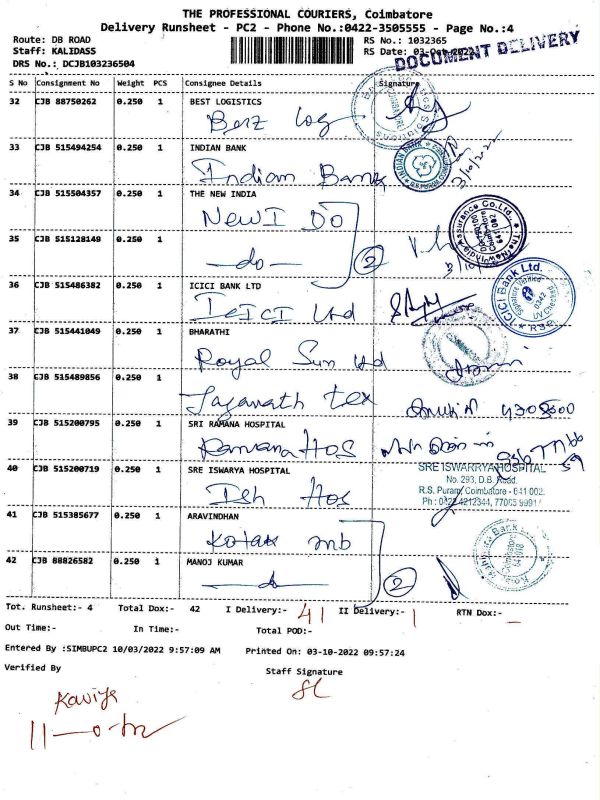 THE PROFESSIONAL COURIERS, Coimbatore
Delivery Runsheet - PC2 - Phone No.:0422-3505555 - Page No.:4
Route: DB ROAD RS No.: 1032365
Staff: KALIDASS RS Date: 03-Oct-2022
DOCUMENT DELIVERY
DRS No.: DCJB103236504
S No Consignment No Weight PCS Consignee Details Signature
32 CJB 88750262 0.250 1 BEST LOGISTICS
Log
33 CJB 515494254 0.250 1 INDIAN BANK
Indian Bank
INDIAN BANK
3/10/2022
34 CJB 515504357 0.250 1 THE NEW INDIA
NewI Do
The New India Assurance Co.Ltd.
641 002
35 CJB 515128149 0.250 1
do 2
36 CJB 515486382 0.250 1 ICICI BANK LTD
ICICI Ltd
ICICI Bank Ltd.
0342
37 CJB 515441049 0.250 1 BHARATHI
Royal Sun Ltd
38 CJB 515489856 0.250 1
Jaganath tex
39 CJB 515200795 0.250 1 SRI RAMANA HOSPITAL
Ramana Hos
40 CJB 515200719 0.250 1 SRE ISWARYA HOSPITAL
Ish Hos
SRE ISWARRYA HOSPITAL
No. 293, D.B. Road,
R.S. Puram, Coimbatore - 641 002.
Ph : 0422-4212344, 77085 99917
41 CJB 515385677 0.250 1 ARAVINDHAN
Kotak mb
42 CJB 88826582 0.250 1 MANOJ KUMAR
do 2
Tot. Runsheet:- 4 Total Dox:- 42 I Delivery:- 41 II Delivery:- 1 RTN Dox:- -
Out Time:- In Time:- Total POD:-
Entered By :SIMBUPC2 10/03/2022 9:57:09 AM Printed On: 03-10-2022 09:57:24
Verified By Staff Signature
Kaviya